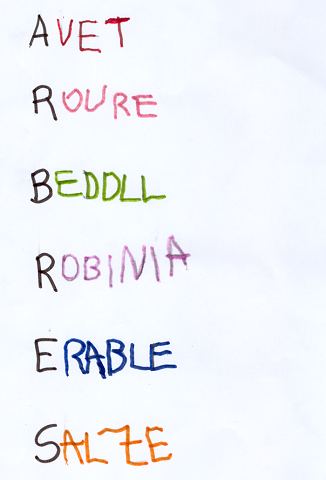 AVET
ROURE
BEDOLL
ROBINIA
ERABLE
SALZE